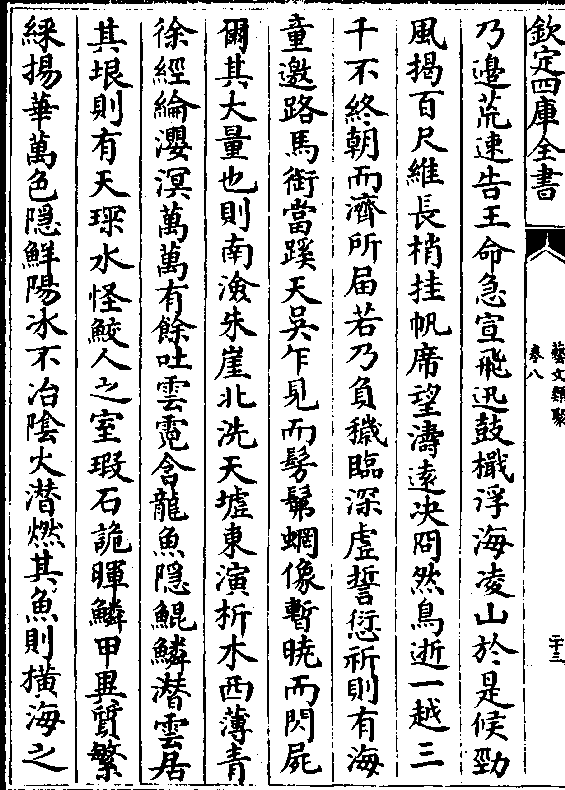 欽定四庫全書
藝文類聚
卷八
二十三
乃邊荒速告王命急宣飛迅鼓檝浮海凌山於是候勁
風揭百尺維長梢挂帆席望濤遠决冏然鳥逝一越三
千不終朝而濟所届若乃負穢臨深虛誓愆祈則有海
童邀路馬銜當蹊天吳乍見而髣髴蝄像暫曉而閃屍
爾其大量也則南澰朱崖北洗天墟東演析木西薄青
徐經綸瀴溟萬萬有餘吐雲霓含龍魚隱鯤鱗潛雲居
其垠則有天琛水怪鮫人之室瑕石詭暉鱗甲異質繁
綵揚華萬色隱鮮陽冰不冶陰火潜燃其魚則横海之